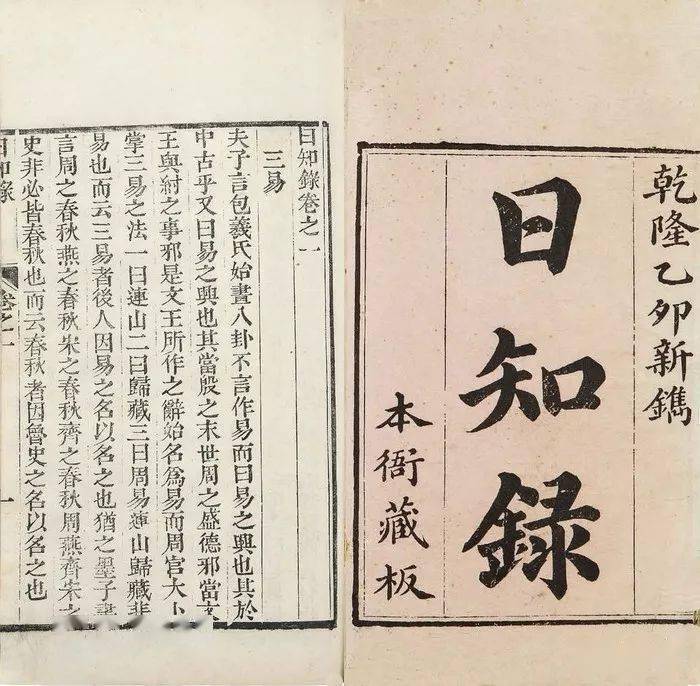 乾隆乙卯新鐫
日知録
本衙藏板
日知錄卷之一
三易
夫子言包羲氏始畫八卦不言作易而曰易之興也其於
中古乎又曰易之興也其當殷之末世周之盛德邪當文
王與紂之事邪是文王所作之辭始名為易而周官大卜
掌三易之法一曰連山二曰歸藏三曰周易連山歸藏非
易也而云三易者後人因易之名以名之也猶之墨子書
言周之春秋燕之春秋宋之春秋齊之春秋周燕齊宋之
史非必皆春秋也而云春秋者因魯史之名以名之也
日知錄
卷之一
一